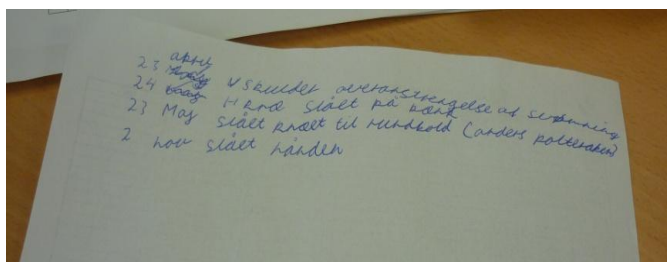 23 april V skulder overanstrengelse af svømning
24 H knæ slået på bænk
23 Maj slået knæet til rundbold (anders polteraben)
2 nov slået hånden